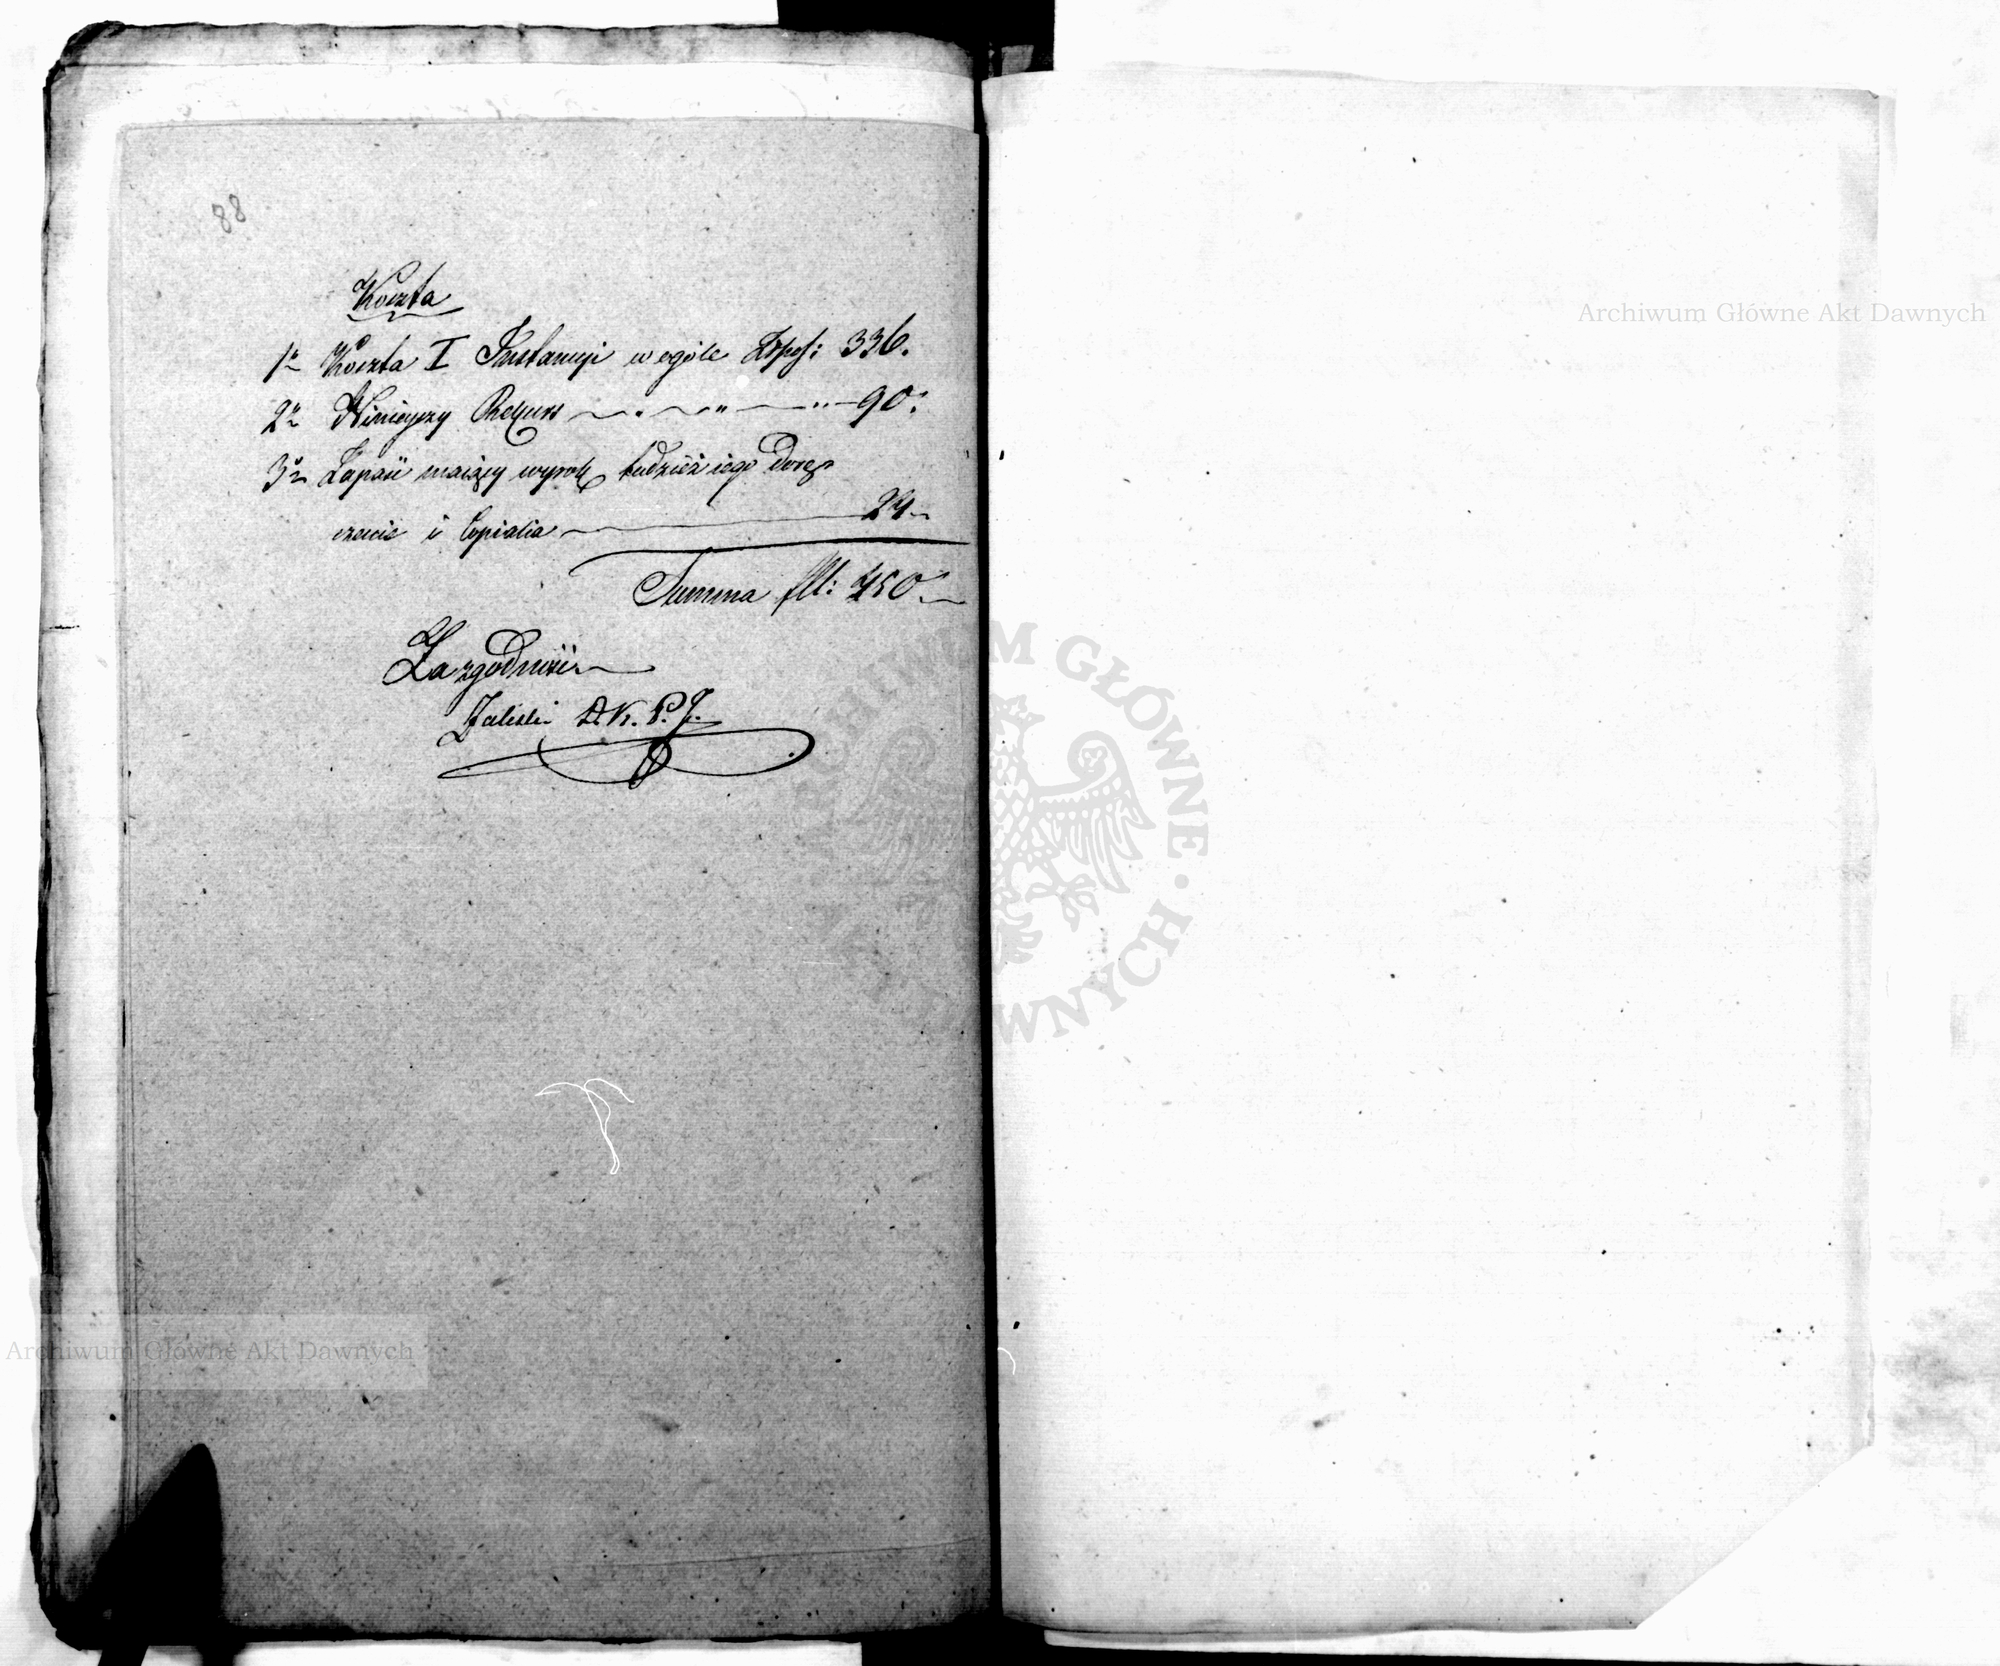 88
Koszta
1o Koszta I Instancyi w ogóle Złpol: 336.
2o Ninieyszy Rekurs — „ — „ — „ — 90.
3o Zapaść maiący wyrok tudzież iego dorę-
czenie i Copialia — 24.
Summa fll: 450.
Za zgodność
D. K. P. J.
Archiwum Główne Akt Dawnych
ARCHIWUM GŁÓWNE AKT DAWNYCH
Archiwum Główne Akt Dawnych